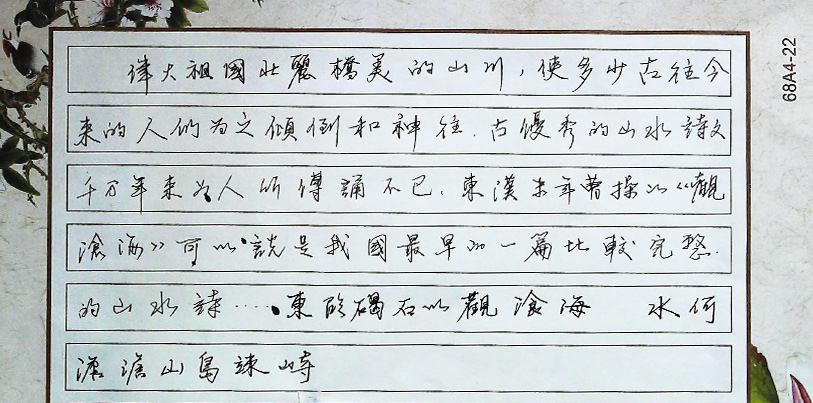 偉大祖國壯麗橋美的山川，使多少古往今
来的人们为之傾倒和神往.古優秀的山水詩文
千万年来为人所傳誦不已.東漢末年曹操的《觀
滄海》可以說是我國最早的一篇比較完整.
的山水詩……東臨碣石以觀滄海 水何
澹澹山島竦峙
68A4-22